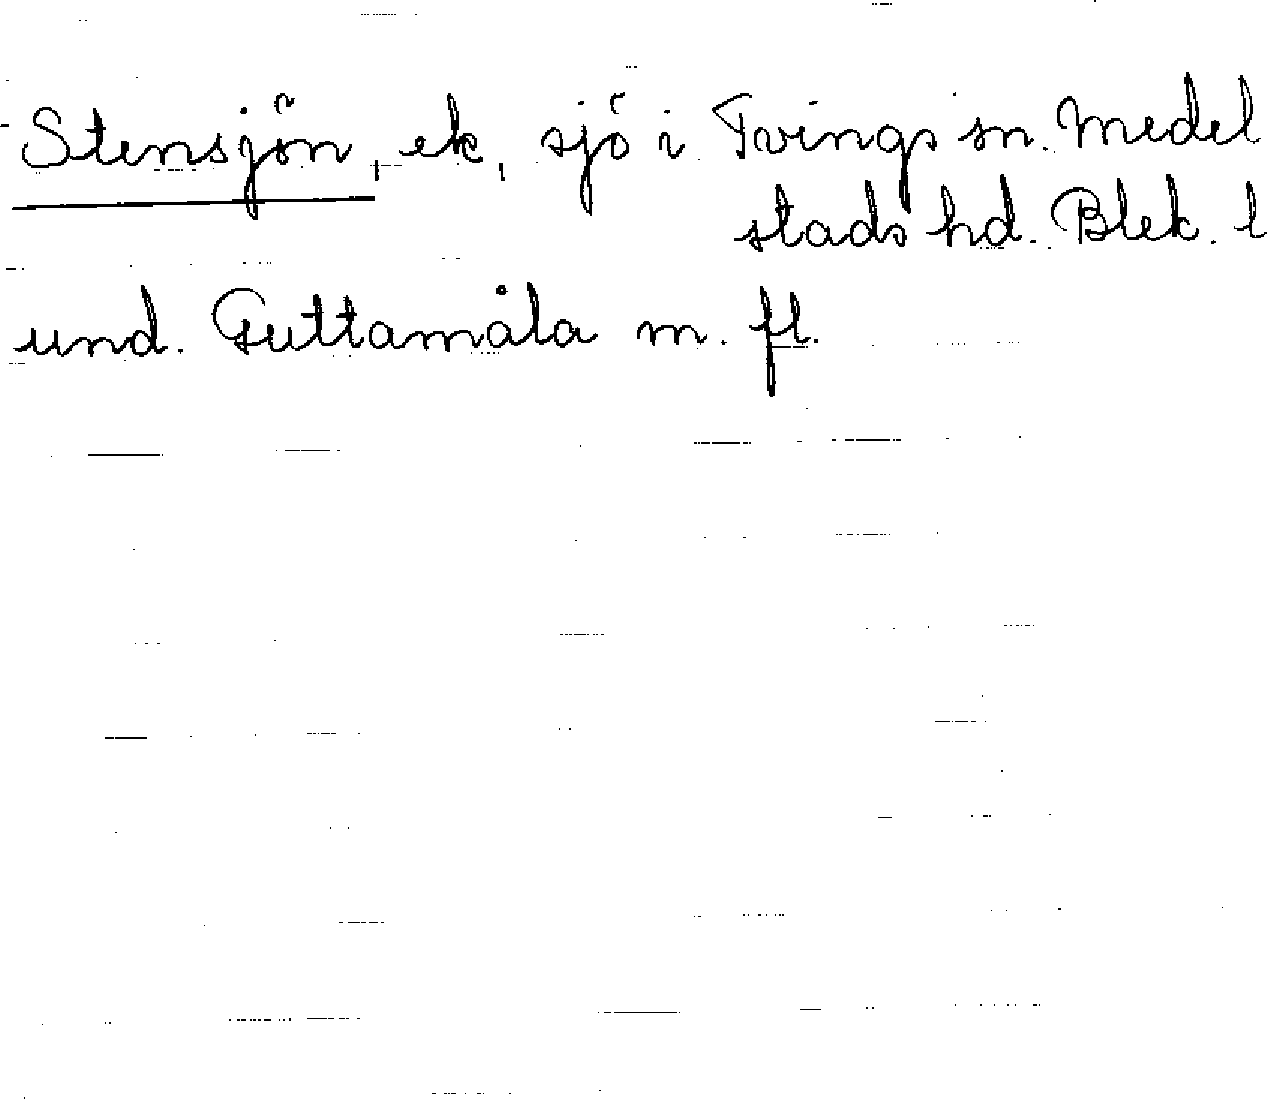 Stensjön, ek, sjö i Tvings sn. Medel
stads hd. Blek. l
und. Guttamåla m. fl.